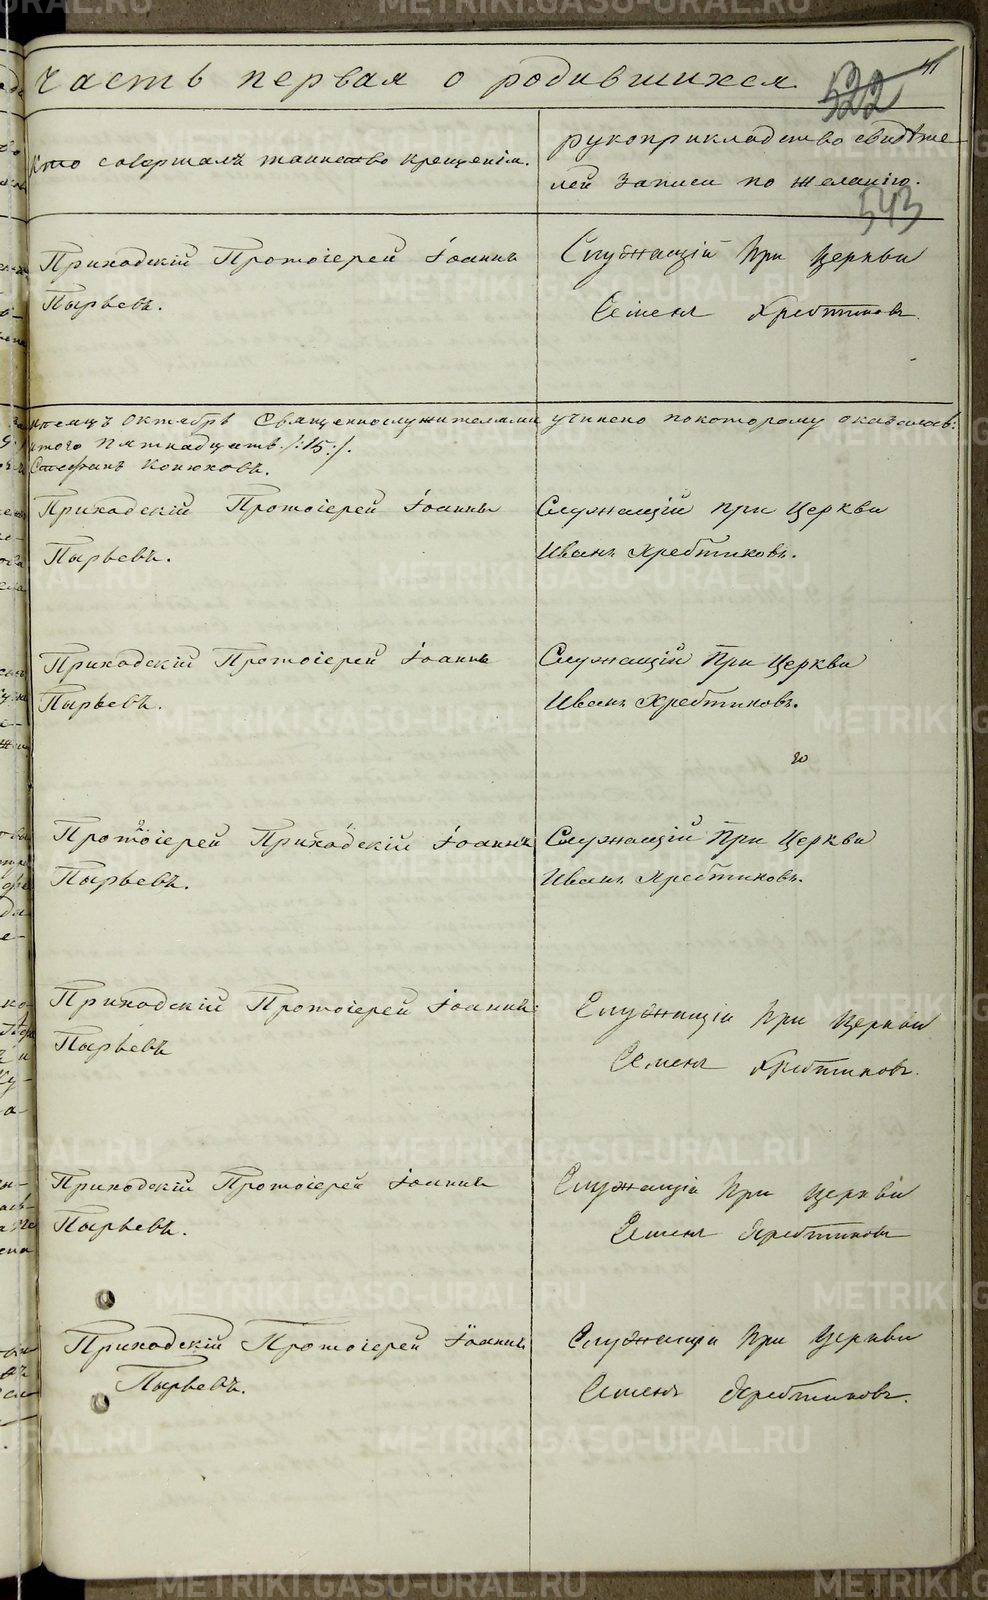 Часть первая о родившихся.
522
543
Кто совершалъ таинство крещенія.
рукоприкладство свидѣте-
лей записи по желанію.
Приходскій Протоіерей Іоаннъ
Пырьевъ.
Служащій При Церкви
Семенъ Хребтиковъ.
Октябрѣ Священнослужителями учинено по которому оказалось:
итого Пятнадцать /:15:/.
Стефанъ Конюховъ.
Приходскій Протоіерей Іоаннъ
Пырьевъ.
Служащій при Церкви
Иванъ Хребтиковъ.
Приходскій Протоіерей Іоаннъ
Пырьевъ.
Служащій При Церкви
Иванъ Хребтиковъ.
Протоіерей Приходскій Іоаннъ
Пырьевъ.
Служащій При Церкви
Иванъ Хребтиковъ.
Приходскій Протоіерей Іоаннъ
Пырьевъ
Служащій При Церкви
Семенъ Хребтиковъ.
Приходскій Протоіерей Іоаннъ
Пырьевъ.
Служащій При Церкви
Семенъ Хребтиковъ
Приходскій Протоіерей Іоаннъ
Пырьевъ.
Служащій При Церкви
Семенъ Хребтиковъ.
METRIKI.GASO-URAL.RU